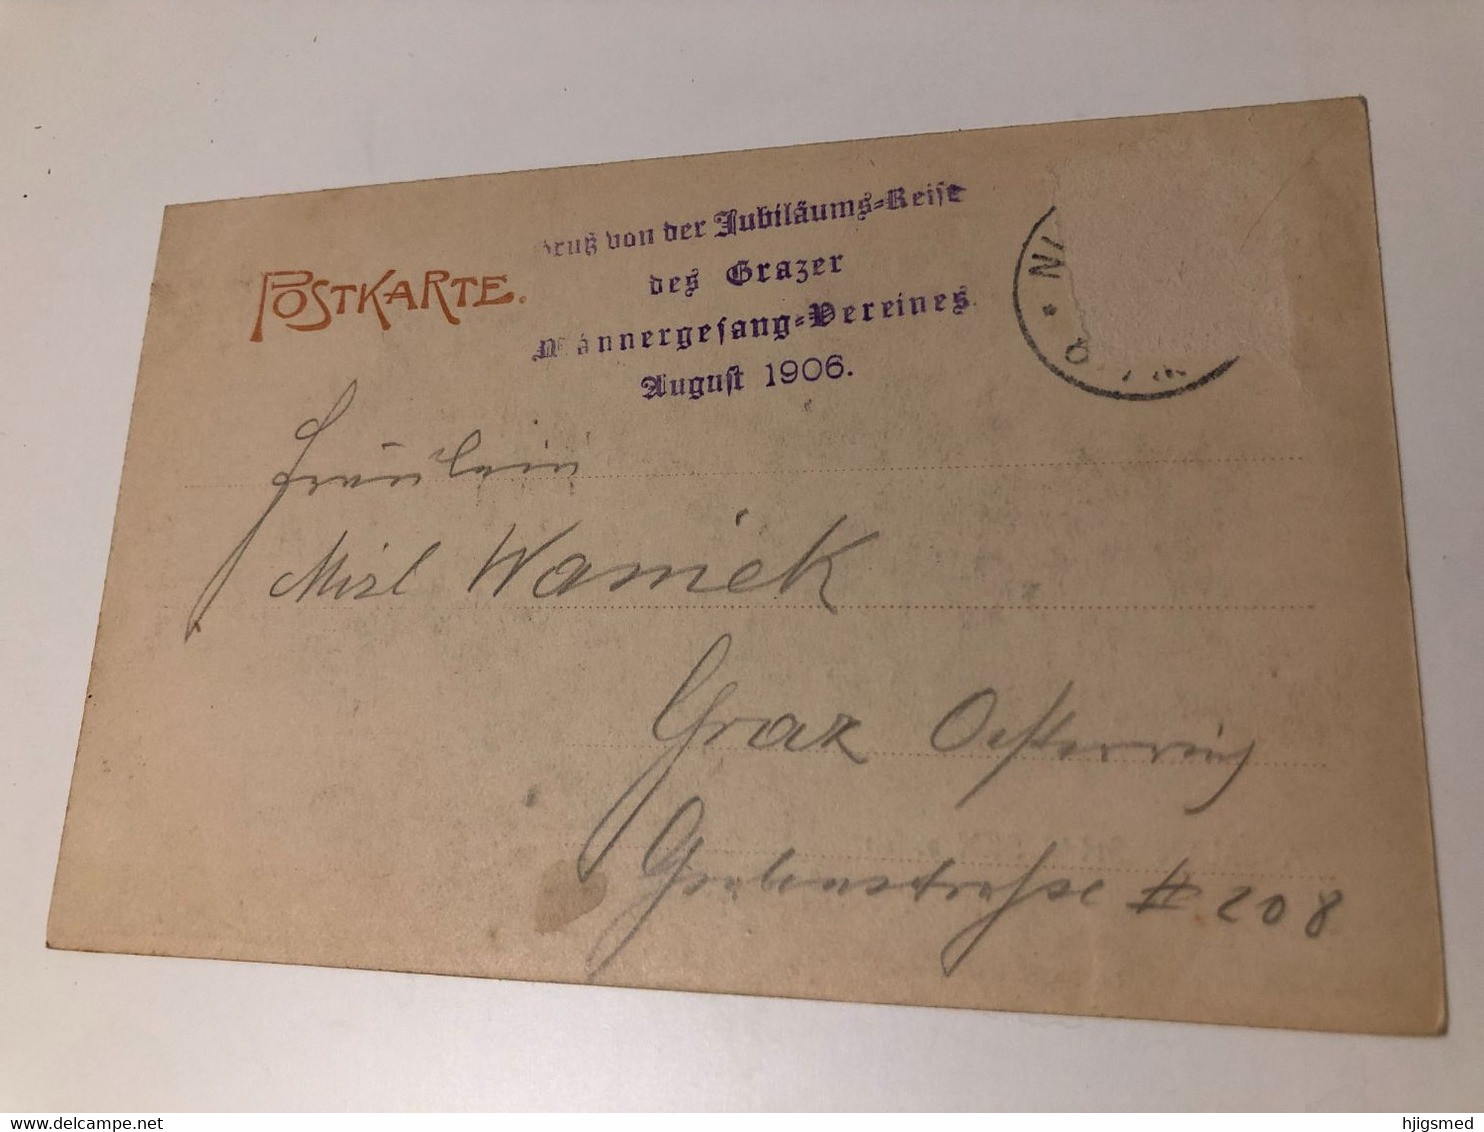 POSTKARTE.
Gruß von der Jubiläums-Reise
des Grazer
Männergesang-Vereines
August 1906.
Fräulein
Mizl Waniek
Graz Oesterreich
Grabenstraße # 208
www.delcampe.net
hjlgsmed